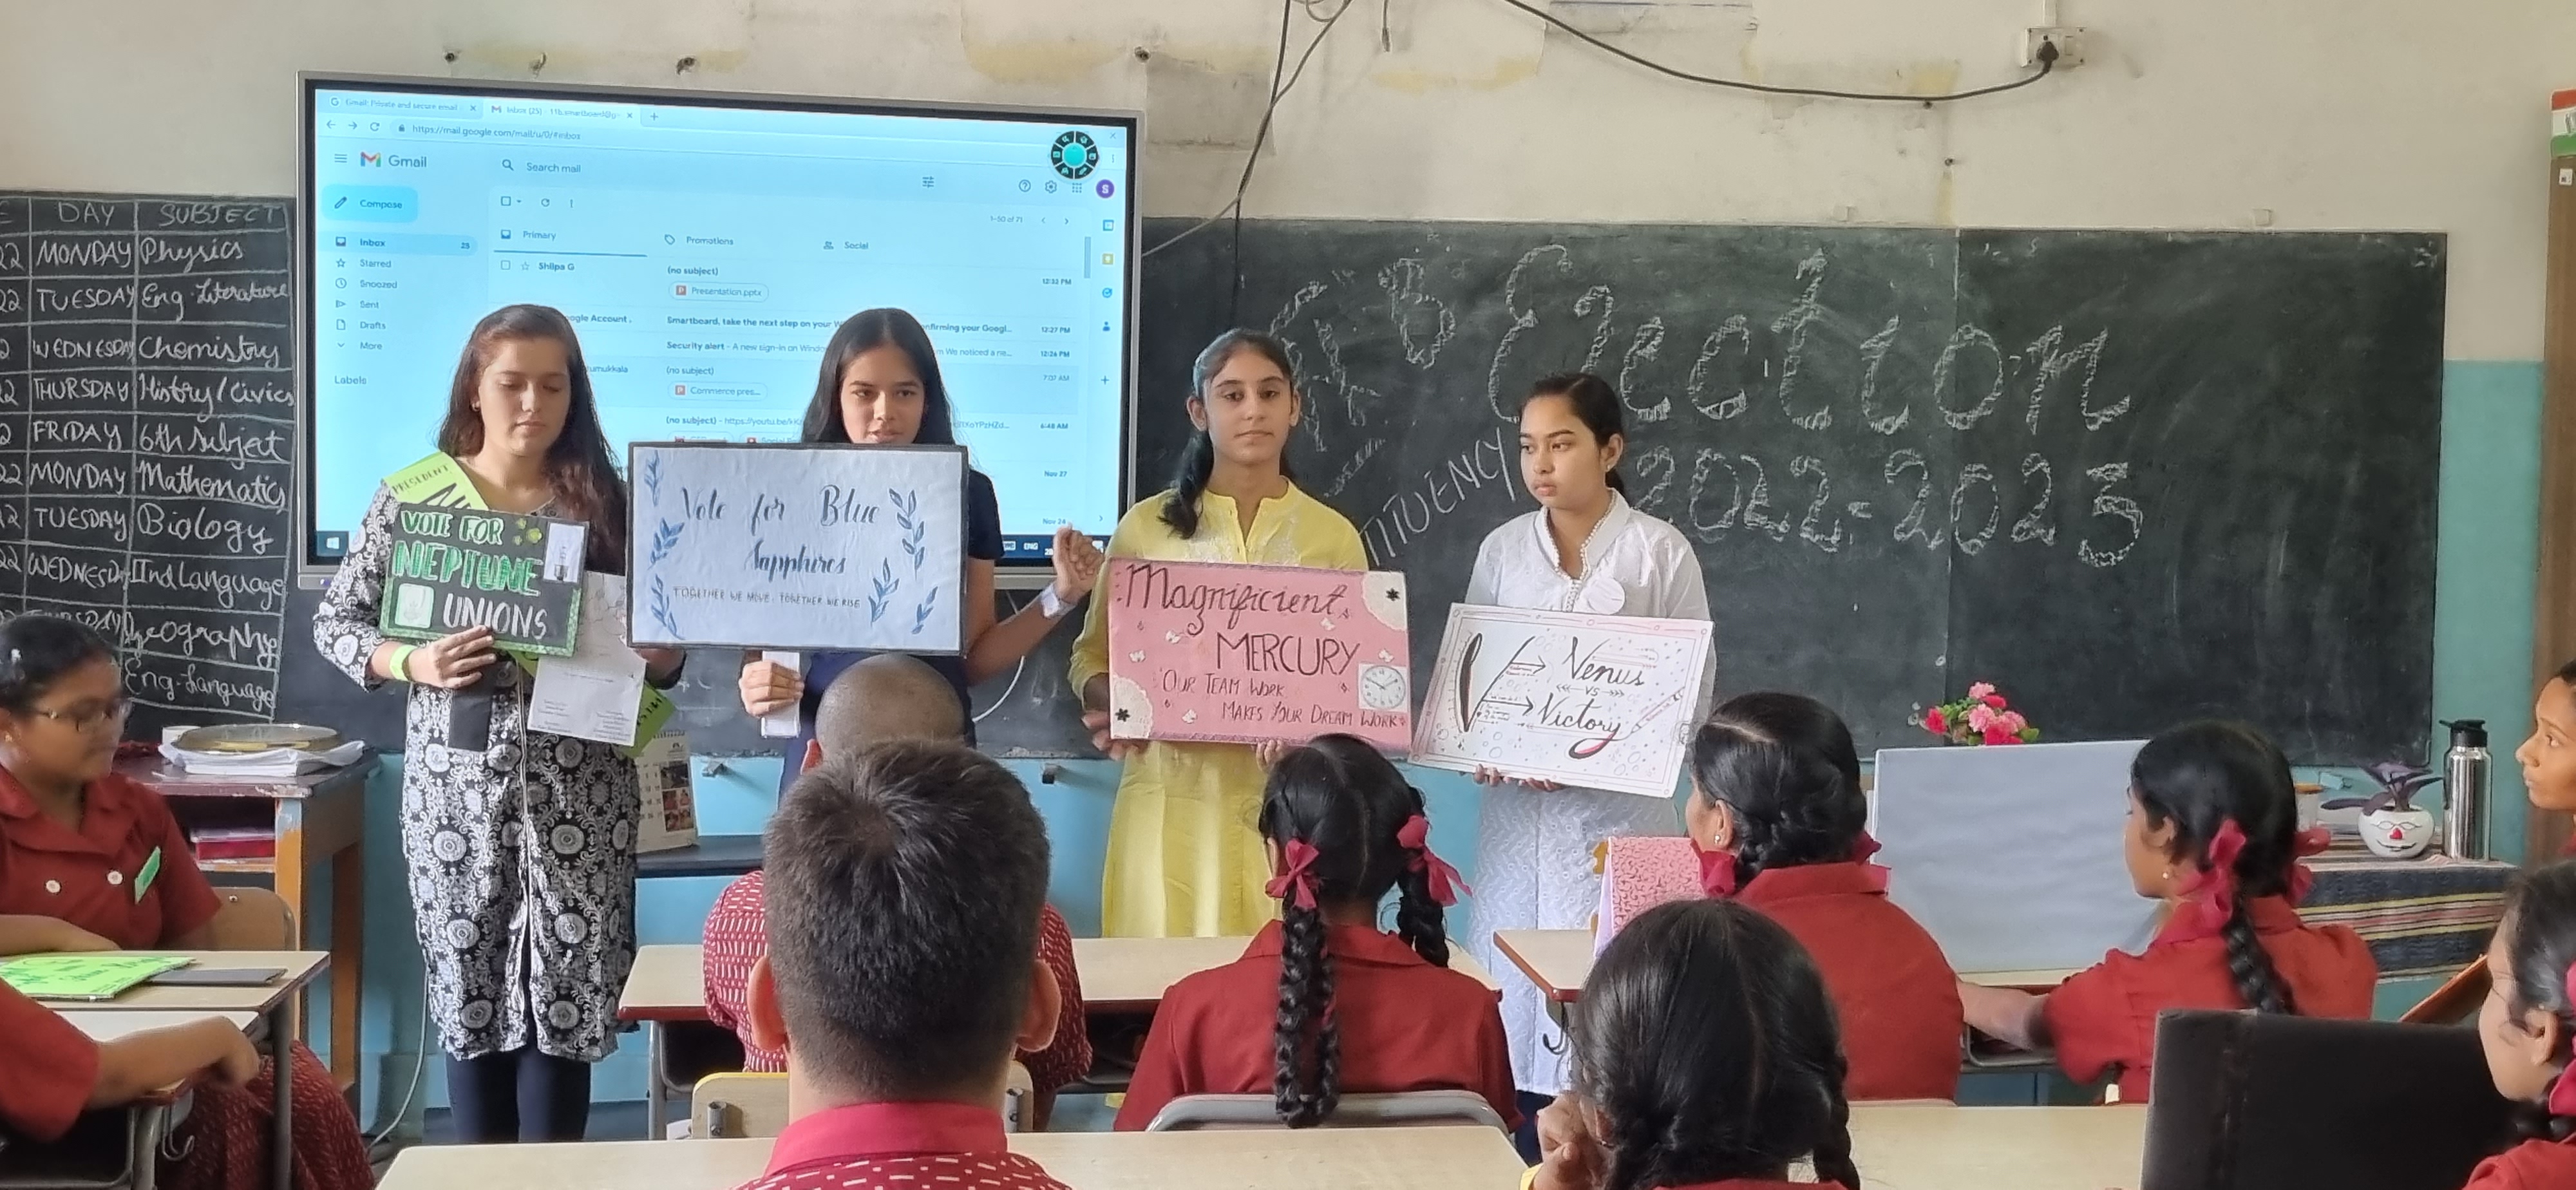 DAY SUBJECT
22 MONDAY Physics
22 TUESDAY Eng. Literature
WEDNESDAY Chemistry
22 THURSDAY Histry/Civics
FRIDAY 6th Subject
22 MONDAY Mathematics
TUESDAY Biology
22 WEDNESD Ind Language
Geography
Eng-Language
Gmail: Private and secure email
Inbox (25)
https://mail.google.com/mail/u/0/#inbox
Gmail
Search mail
Compose
1–50 of 71
Inbox 25
Starred
Snoozed
Sent
Drafts
More
Labels
Primary
Promotions
Social
Shilpa G
(no subject)
12:32 PM
Presentation.pptx
ogle Account .
Smartboard, take the next step on your
nfirming your Googl...
12:27 PM
Security alert - A new sign-in on Windo
We noticed a ne...
12:26 PM
tumukkala
(no subject)
7:07 AM
Commerce pres...
(no subject) - https://youtu.be/
6:48 AM
Nov 27
Nov 24
ENG
Election
2022-2023
TITUENCY
PRESEDENT
VOTE FOR
NEPTUNE
UNIONS
Vote for Blue
Sapphires
TOGETHER WE MOVE - TOGETHER WE RISE
Magnificient
MERCURY
OUR TEAM WORK
MAKES YOUR DREAM WORK
V
Venus
VS
Victory